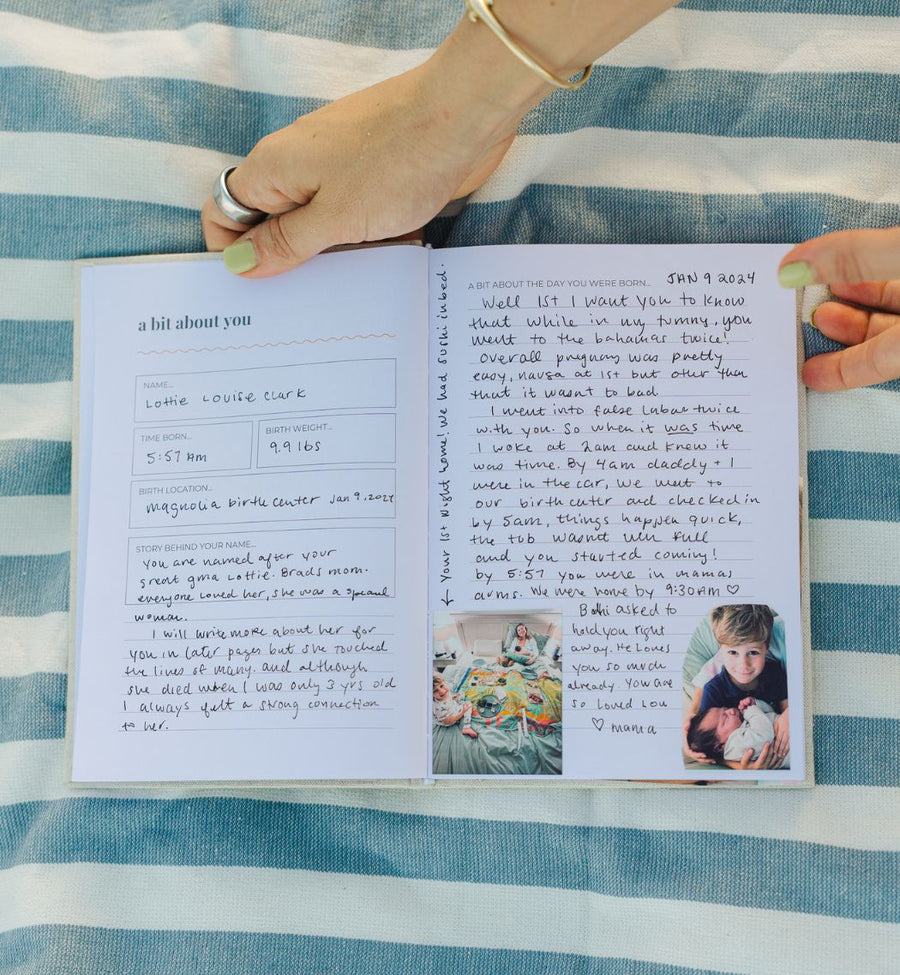 a bit about you
NAME...
Lottie Louise Clark
TIME BORN...
5:57 AM
BIRTH WEIGHT...
9.9 lbs
BIRTH LOCATION...
Magnolia birth center Jan 9, 2024
STORY BEHIND YOUR NAME...
you are named after your
great gma Lottie. Brads mom.
everyone loved her, she was a special
woman.
I will write more about her for
you in later pages but she touched
the lives of many. and although
she died when I was only 3 yrs old
I always felt a strong connection
to her.
← Your 1st night home! We had sushi in bed.
A BIT ABOUT THE DAY YOU WERE BORN... JAN 9 2024
Well 1st I want you to know
that while in my tummy, you
went to the bahamas twice!
Overall pregnancy was pretty
easy, nausa at 1st but other than
that it wasnt to bad.
I went into false labor twice
with you. So when it was time
I woke at 2am and knew it
was time. By 4am daddy + I
were in the car, we went to
our birth center and checked in
by 5am, things happen quick,
the tub wasnt even full
and you started coming!
by 5:57 you were in mamas
arms. We were home by 9:30AM ♡
Bodhi asked to
hold you right
away. He loves
you so much
already. You are
so loved Lou
♡ mama